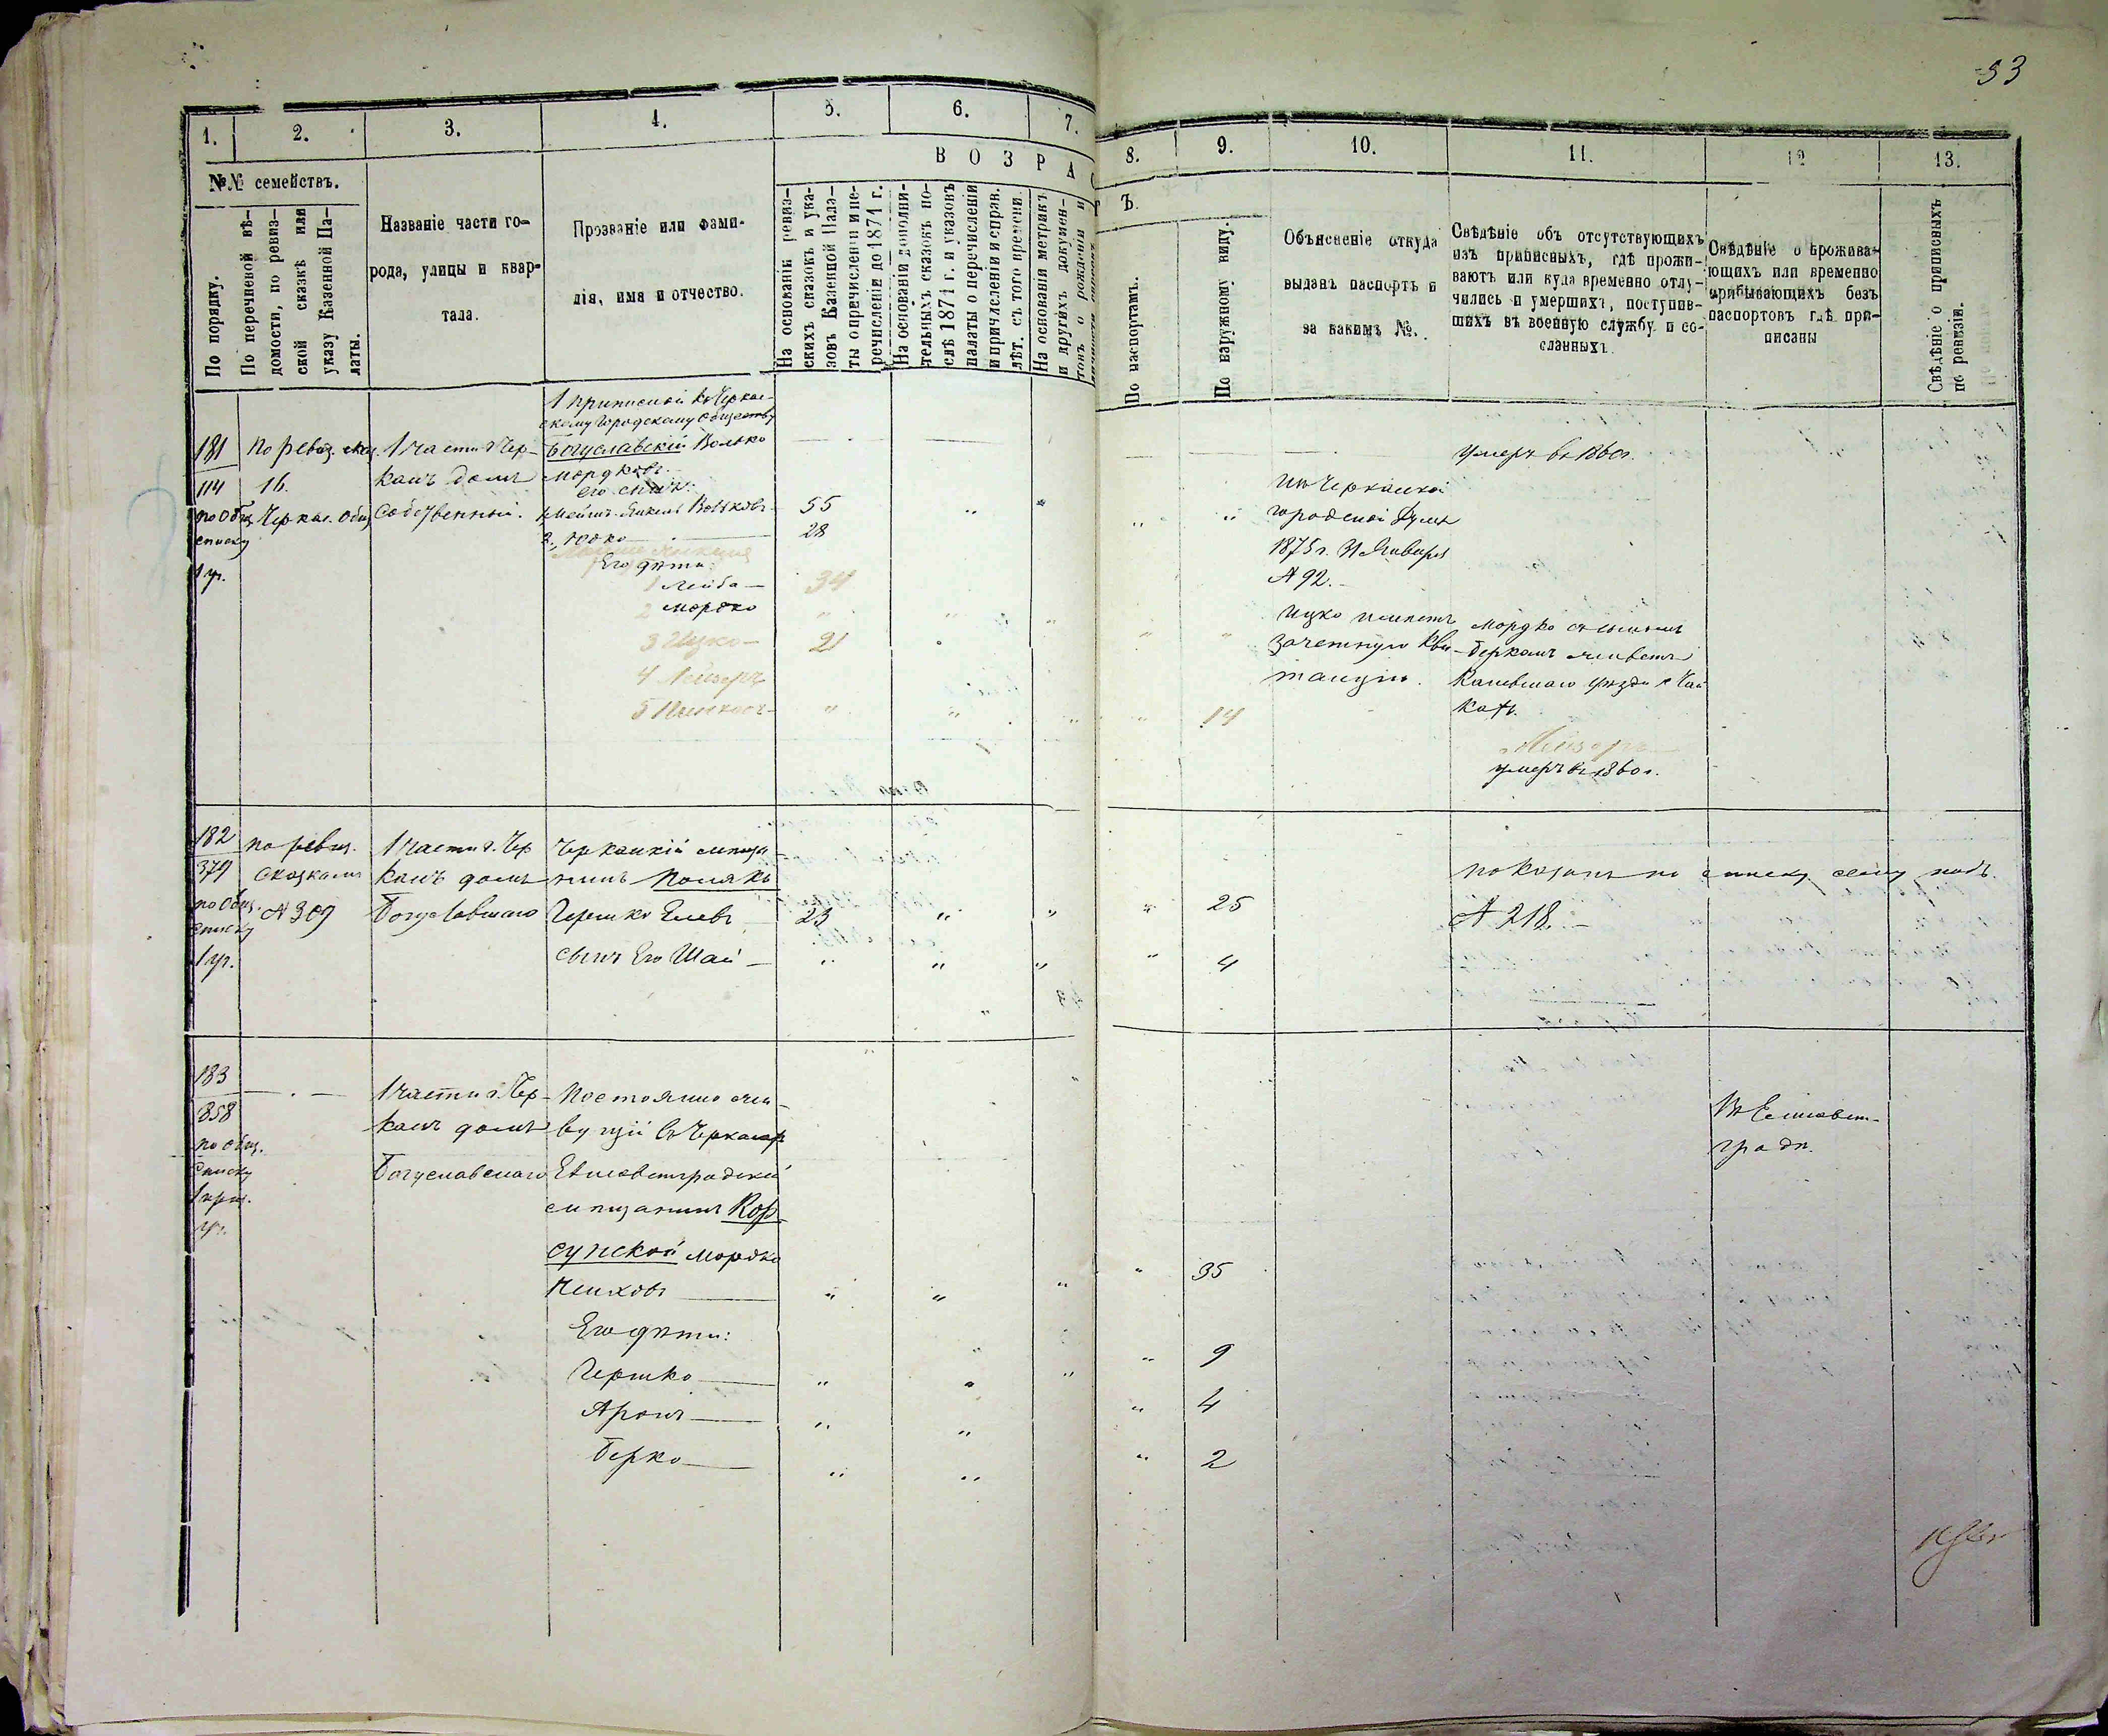 53
1.
2.
3.
4.
5.
6.
7.
8.
9.
10.
11.
12
13.
№№ семействъ.
По порядку.
По перечневой вѣ-
домости, по ревиз-
ской сказкѣ или
указу Казенной Па-
латы.
Названіе части го-
рода, улицы и квар-
тала.
Прозваніе или фами-
лія, имя и отчество.
ВОЗРАСТЪ.
На основаніи ревиз-
скихъ сказокъ и ука-
зовъ Казенной Пала-
ты о причисленіи и пе-
речисленіе до 1871 г.
На основаніи дополни-
тельныхъ сказокъ по-
слѣ 1871 г. и указовъ
палаты о перечисленіи
и причисленіи и справ.
лѣт. съ того времени.
На основаніи метрикъ
и другихъ докумен-
товъ о рожденіи и
По паспортамъ.
По наружному виду.
Объясненіе откуда
выданъ паспортъ и
за какимъ №.
Свѣдѣніе объ отсутствующихъ
изъ приписныхъ, гдѣ прожи-
ваютъ или куда временно отлу-
чились и умершихъ, поступив-
шихъ въ военную службу и со-
сланныхъ.
Свѣдѣніе о прожива-
ющихъ или временно
прибывающихъ безъ
паспортовъ гдѣ при-
писаны
Свѣдѣніе о приписныхъ
по ревизіи.
181
114
по Общ.
списку
1 гр.
По ревиз. сказ.
16.
Черкас. Общ.
1 части г. Чер-
касъ домъ
Собственный.
1 приписной къ Черкас-
скому Городскому Обществу
Богуславскій Волько
Мордковъ
его сыны:
Вольковъ 55
2, Юдко 28
Его дѣти:
1 Лейба — 34
2 Мордко
3 Ицко — 21
4 Лейзеръ
5 Пинхосъ — 14
умеръ въ 1860 г.
изъ Черкаской
городской Думы
1875 г. 31 Января
№ 92.
Ицко имѣетъ
зачетную Кви-
танцію.
Мордко съ сыномъ
Беркомъ живетъ
Каневскаго уѣзда
Лейзеръ
умеръ въ 1860 г.
182
379
по Общ.
списку
1 гр.
по ревиз.
сказкамъ
№ 309
1 части г. Чер
касъ домъ
Богуславскаго
Черкаскій мѣща
нинъ Полякъ
Гершко 23 25
сынъ Его Шай — 4
показанъ по списку сему подъ
№ 218. —
183
858
по общ.
списку
1 части г. Чер-
касъ домъ
Богуславскаго
Постоянно жи-
вущій въ Черкасах
Елисаветградскій
мѣщанинъ Кор-
сунской Мордко
35
Его дѣти:
Гершко — 9
Аронъ — 4
Берко — 2
Въ Елисавет-
градѣ.